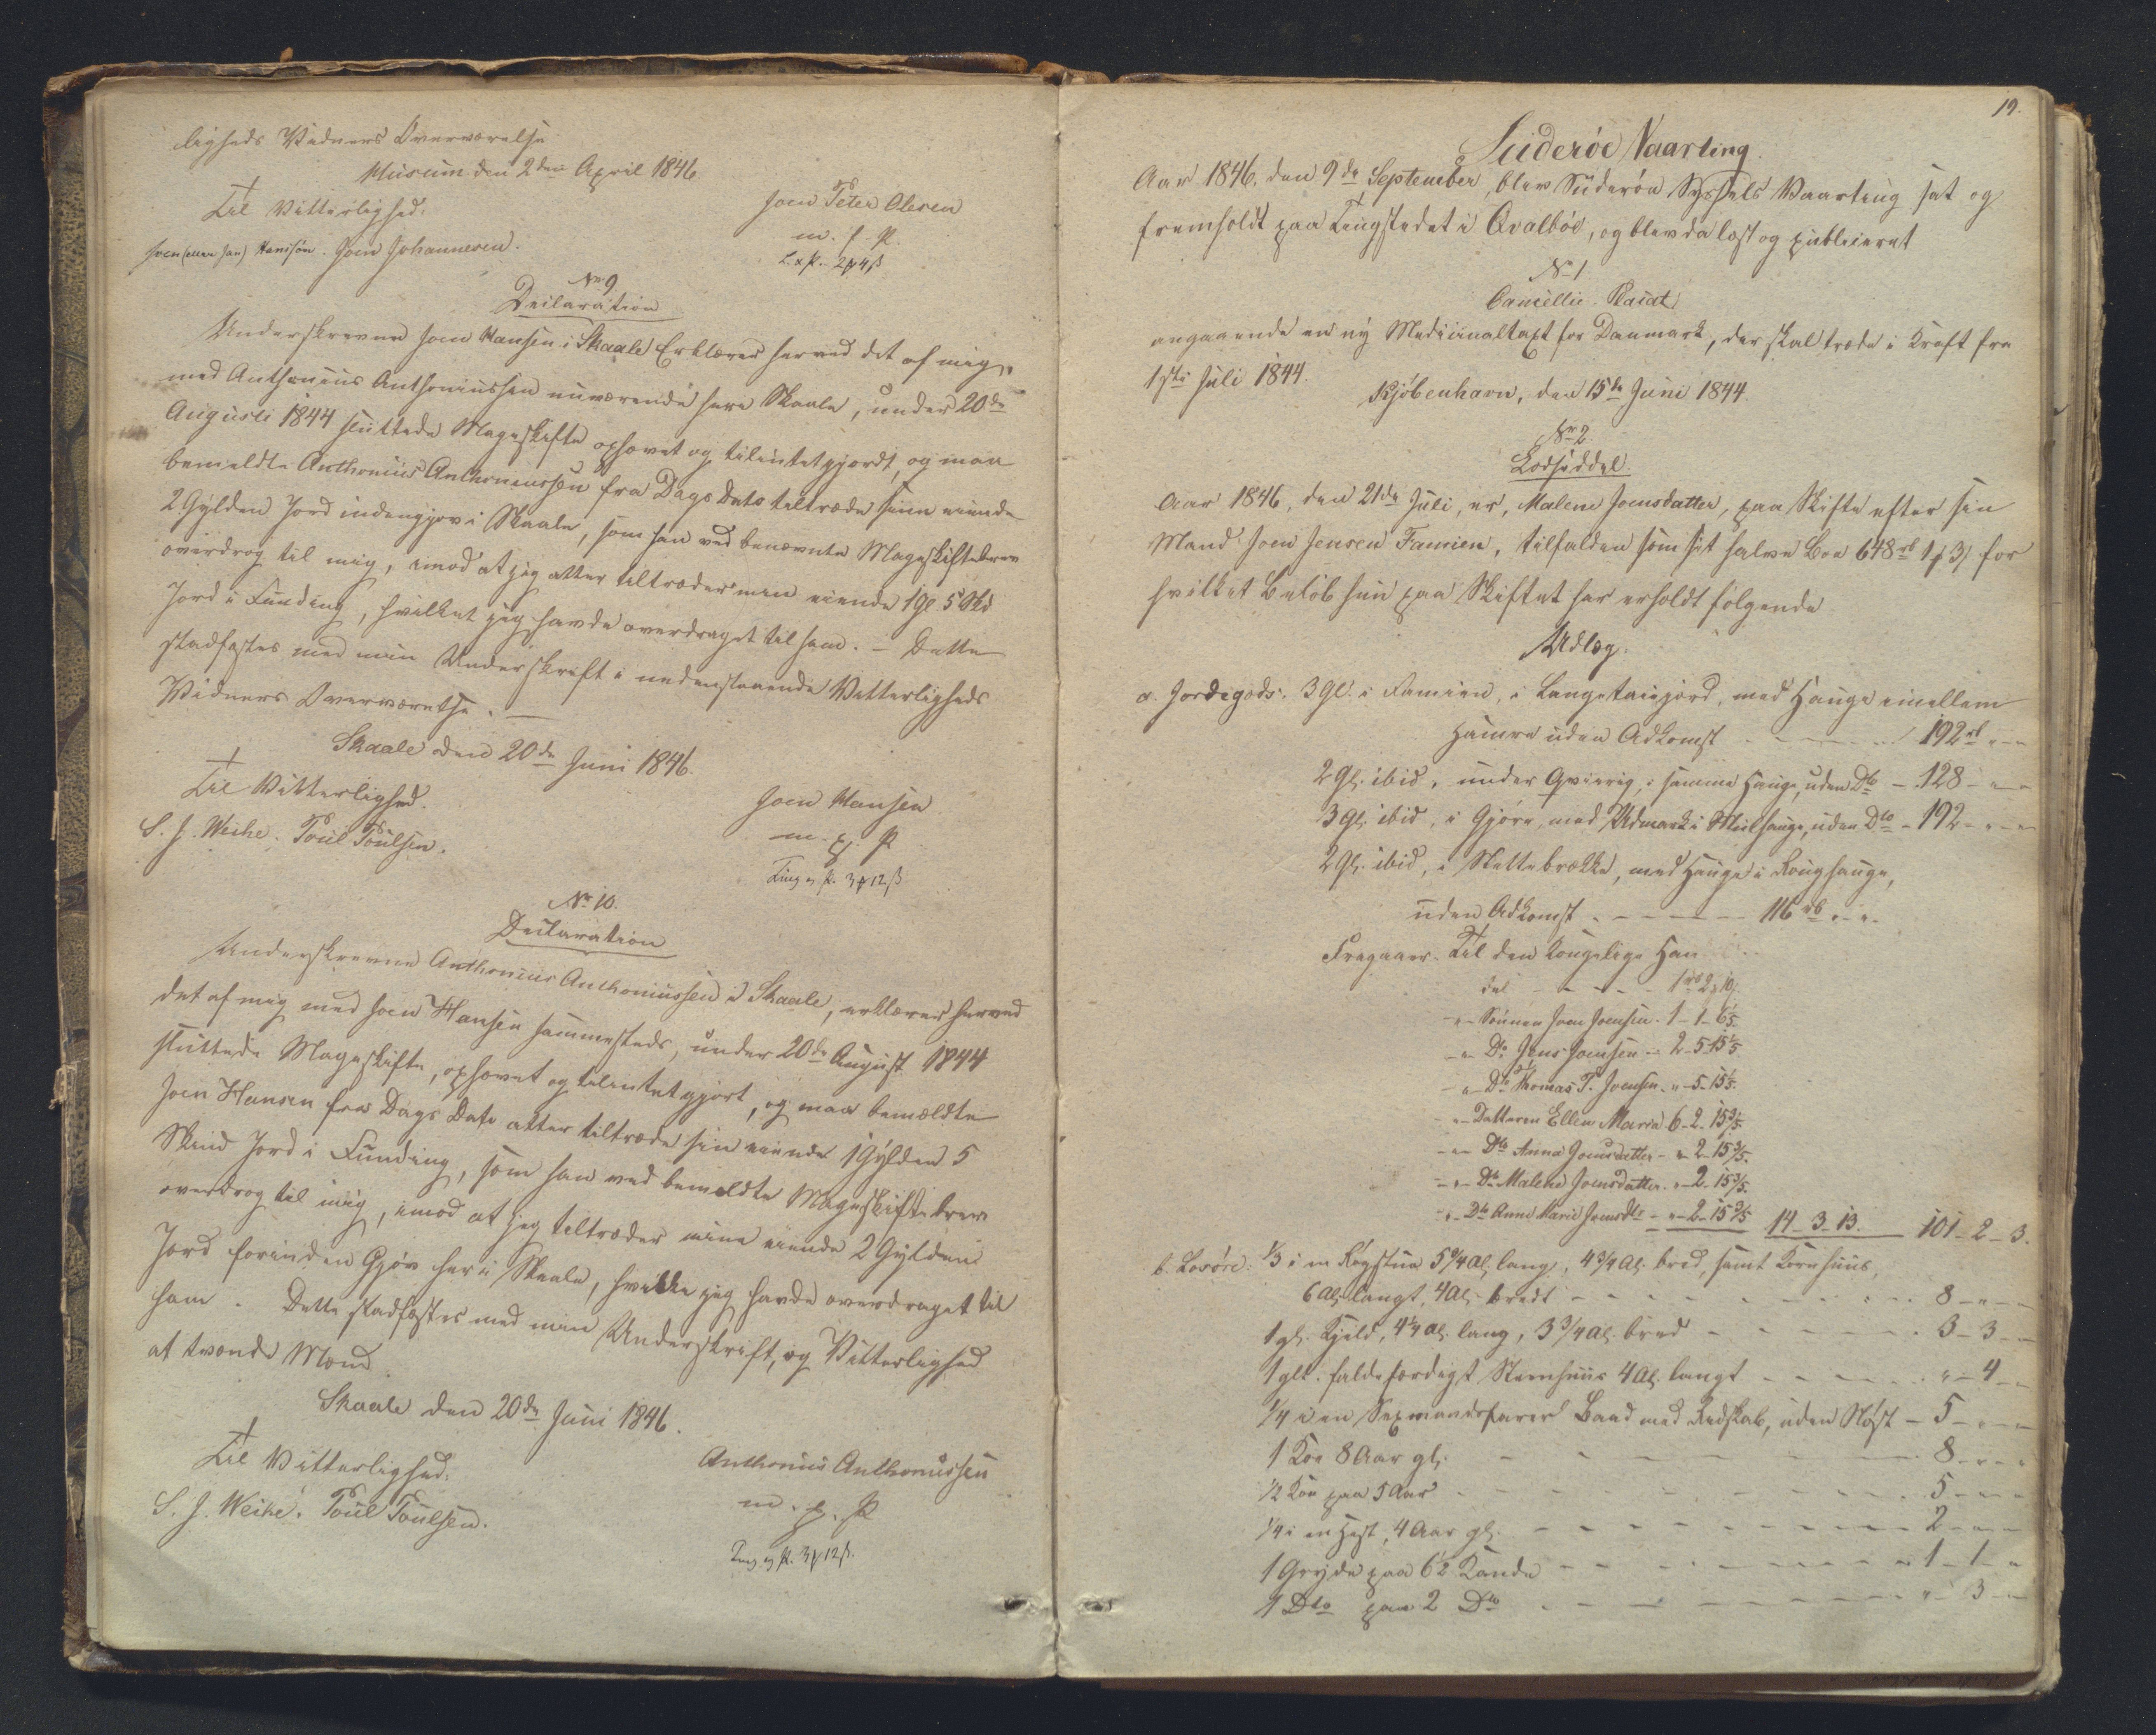 ligheds Vidners Overværelse
Husum den 2den April 1846
Til Vitterlighed:
Joen Peter Olesen
m. f. P.
Joen Johannesen.
L. & P. 2 4ß
No 9
Declaration
Underskrevne Joen Hansen i Skaale Erklærer herved det af mig,
med Anthonius Anthoniussen nuværende here Skaale, under 20de
Augusti 1844 sluttede Mageskifte ophævet og tilintetgjordt, og maa
bemeldte Anthonius Anthoniussen fra Dags Dato tiltræde sine eiende
2 Gylden Jord indengjov i Skaale, som han ved benævnte Mageskiftebrev
overdrog til mig, imod at jeg atter tiltræder min eiende 1 Gl 5 Skd
Jord i Funding, hvilket jeg havde overdraget til ham. – Dette
stadfæstes med min Underskrift i nedenstaaende Vitterligheds
Vidners Overværelse. –
Skaale den 20de Juni 1846.
Til Vitterlighed.
Joen Hansen
S. J. Weihe. Poul Poulsen.
m. p. P
Ting og P. 3 12ß
No 10.
Declaration
Underskrevne Anthonius Anthoniussen i Skaale, erklærer herved
det af mig med Joen Hansen sammesteds, under 20de August 1844
sluttede Mageskifte, ophævet og tilintetgjort, og maa bemældte
Joen Hansen fra Dags Dato atter tiltræde sin eiende 1 Gylden 5
Skind Jord i Funding, som han ved bemeldte Mageskiftebrev
overdrog til mig, imod at jeg tiltræder mine eiende 2 Gylden
Jord forinden Gjøv her i Skaale, hvilke jeg havde overdraget til
ham. Dette stadfæstes med min Underskrift, og Vitterlighed
at tvende Mænd
Skaale den 20de Juni 1846.
Til Vitterlighed.
Anthonius Anthoniussen
S. J. Weihe. Poul Poulsen.
m. p. P
Ting og P. 3 12ß.
19.
Suderöe Vaarting
Aar 1846, den 9de September, blev Suderöe Syssels Vaarting sat og
fremholdt paa Tingstedet i Qvalböe, og blev da læst og publiceret
No 1
Cancellie-Placat
angaaende en ny Medicinaltaxt for Danmark, der skal træde i Kraft fra
1ste Juli 1844.
Kjöbenhavn, den 15de Juni 1844.
No 2.
Lodseddel.
Aar 1846, den 21de Juli, er, Malene Joensdatter, paa Skifte efter sin
Mand Joen Jensen Famien, tilfalden som sit halve Boe 648 rb 1 3 for
hvilket Beløb hun paa Skiftet har erholdt følgende
Udlæg.
a. Jordegods: 3 Gl. i Famien, i med Hauge imellem
Hamre uden Adkomst - - - 192 rb " - "
2 Gl. ibid, under i samme Hauge, uden Do - 128 - " - "
3 Gl. ibid, i Gjøre, med Udmark i uden Dto - 192 - " - "
2 Gl. ibid, i med Hauge i
uden Adkomst - - - - 116 rb " - "
Fragaaer. Til den Kongelige Han
del - - - - 1 rb 2 10
" - Sønnen Joen Joensen. 1 - 1 - 6 1/5
" - Do Jens Joensen - 2 - 5 - 15 1/5
" - Do Thomas P. Joensen. " - 5 - 15 1/5
" - Datteren Ellen Maria 6 - 2 - 15 3/5
" - Do Anna Joensdatter - " 2 - 15 3/5.
" - Do Malene Joensdatter. " - 2 - 15 3/5.
" - Do Anne Marie Joensdtr - " - 2 - 15 3/5 14 - 3 - 13. 101 - 2 - 3.
b. Løsøre: 1/3 i en Røgstue 5 3/4 Al. lang, 4 3/4 Al. bred, samt Kornhuus,
6 Al. langt, 4 Al. bredt - - - - 8 - " - "
1 gl. Kjeld, 4 1/4 Al. lang, 3 3/4 Al. bred - - - - 3 - 3 - "
1 glt. faldefærdigt Steenhuus 4 Al. langt - - - - " - 4 - "
1/4 i en Sexmandsfarer Baad med Redskab, uden Nøst - 5 - " - "
1 Koe 8 Aar gl. - - - - 8 - " - "
1/2 Koe paa 5 Aar - - - - 5 - " - "
1/4 i en Hest, 4 Aar gl. - - - - 2 - " - "
1 Gryde paa 6 1/2 Kande - - - - 1 - 1 - "
1 Dto paa 2 Dto - - - - " - 3 - "